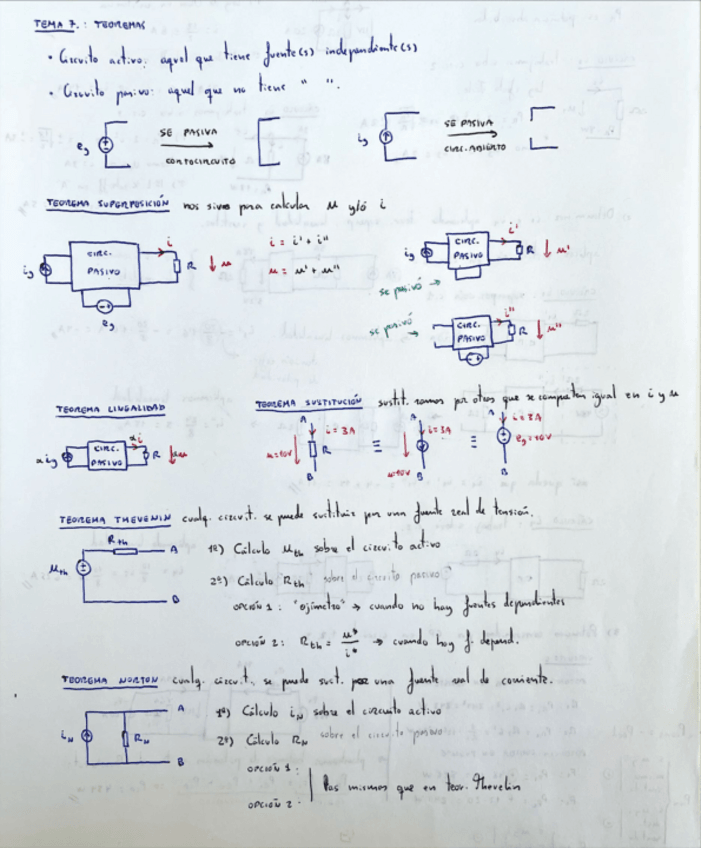 TEMA 7.: TEOREMAS
• Circuito activo: aquel que tiene fuente(s) independiente(s)
• Circuito pasivo: aquel que no tiene " ".
eg SE PASIVA CORTOCIRCUITO
ig SE PASIVA CIRC. ABIERTO
TEOREMA SUPERPOSICIÓN nos sirve para calcular u y/o i
ig CIRC. PASIVO i R u eg
i = i' + i''
u = u' + u''
ig CIRC. PASIVO i' R u'
se pasivó →
se pasivó →
CIRC. PASIVO i'' R u''
TEOREMA LINEALIDAD
α ig CIRC. PASIVO αi R αu
TEOREMA SUSTITUCIÓN sustit. ramas por otras que se comporten igual en i y u
A i = 3A u=10V R B
≡ A i=3A u=10V B
≡ A i=3A eg=10V B
TEOREMA THEVENIN cualq. circuit. se puede sustituir por una fuente real de tensión.
Rth A
uth
B
1º) Cálculo uth sobre el circuito activo
2º) Cálculo Rth sobre el circuito pasivo
OPCIÓN 1: "ojímetro" → cuando no hay fuentes dependientes
OPCIÓN 2: Rth = u*/i* → cuando hay f. depend.
TEOREMA NORTON cualq. circuit. se puede sust. por una fuente real de corriente.
iN RN A B
1º) Cálculo iN sobre el circuito activo
2º) Cálculo RN sobre el circuito pasivo
OPCIÓN 1:
OPCIÓN 2:
los mismos que en teor. Thevelin